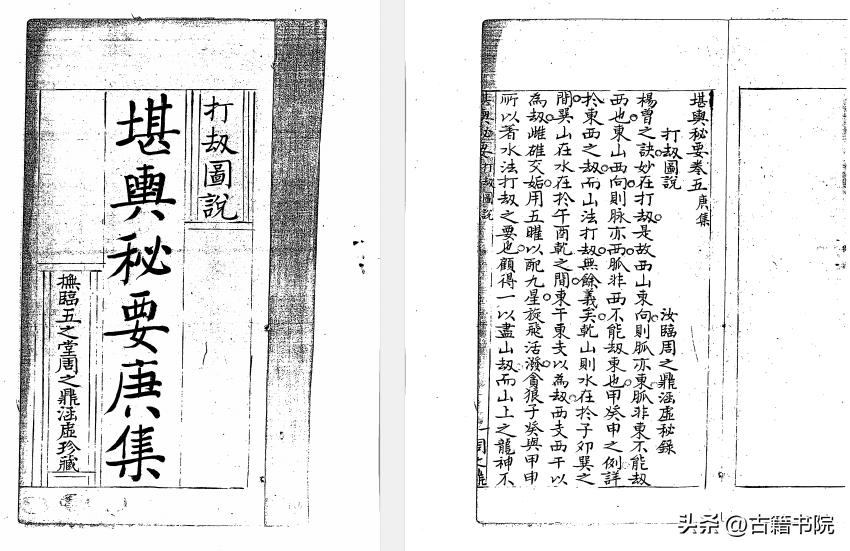 打刼圖說
堪輿秘要庚集
撫臨五之堂周之鼎涵虛珍藏
堪輿秘要卷五庚集
打刼圖說
汝臨周之鼎涵虛秘錄
楊曾之訣妙在打刼是故西山東向則脈亦東脈非東不能刼
西也東山西向則脉亦西脈非西不能刼東也甲癸申之例詳
於東西之刼而山法打刼無餘義矣乾山則水在於子卯巽之
間巽山在水在於午酉乾之間東干東支以為刼西支西干以
為刼雌雄交媾用五曜以配九星旋飛活潑貪狼子癸與甲申
所以着水法打刼之要也顧得一以盡山刼而山上之龍神不
堪輿秘要打刼圖說
头条 @古籍书院